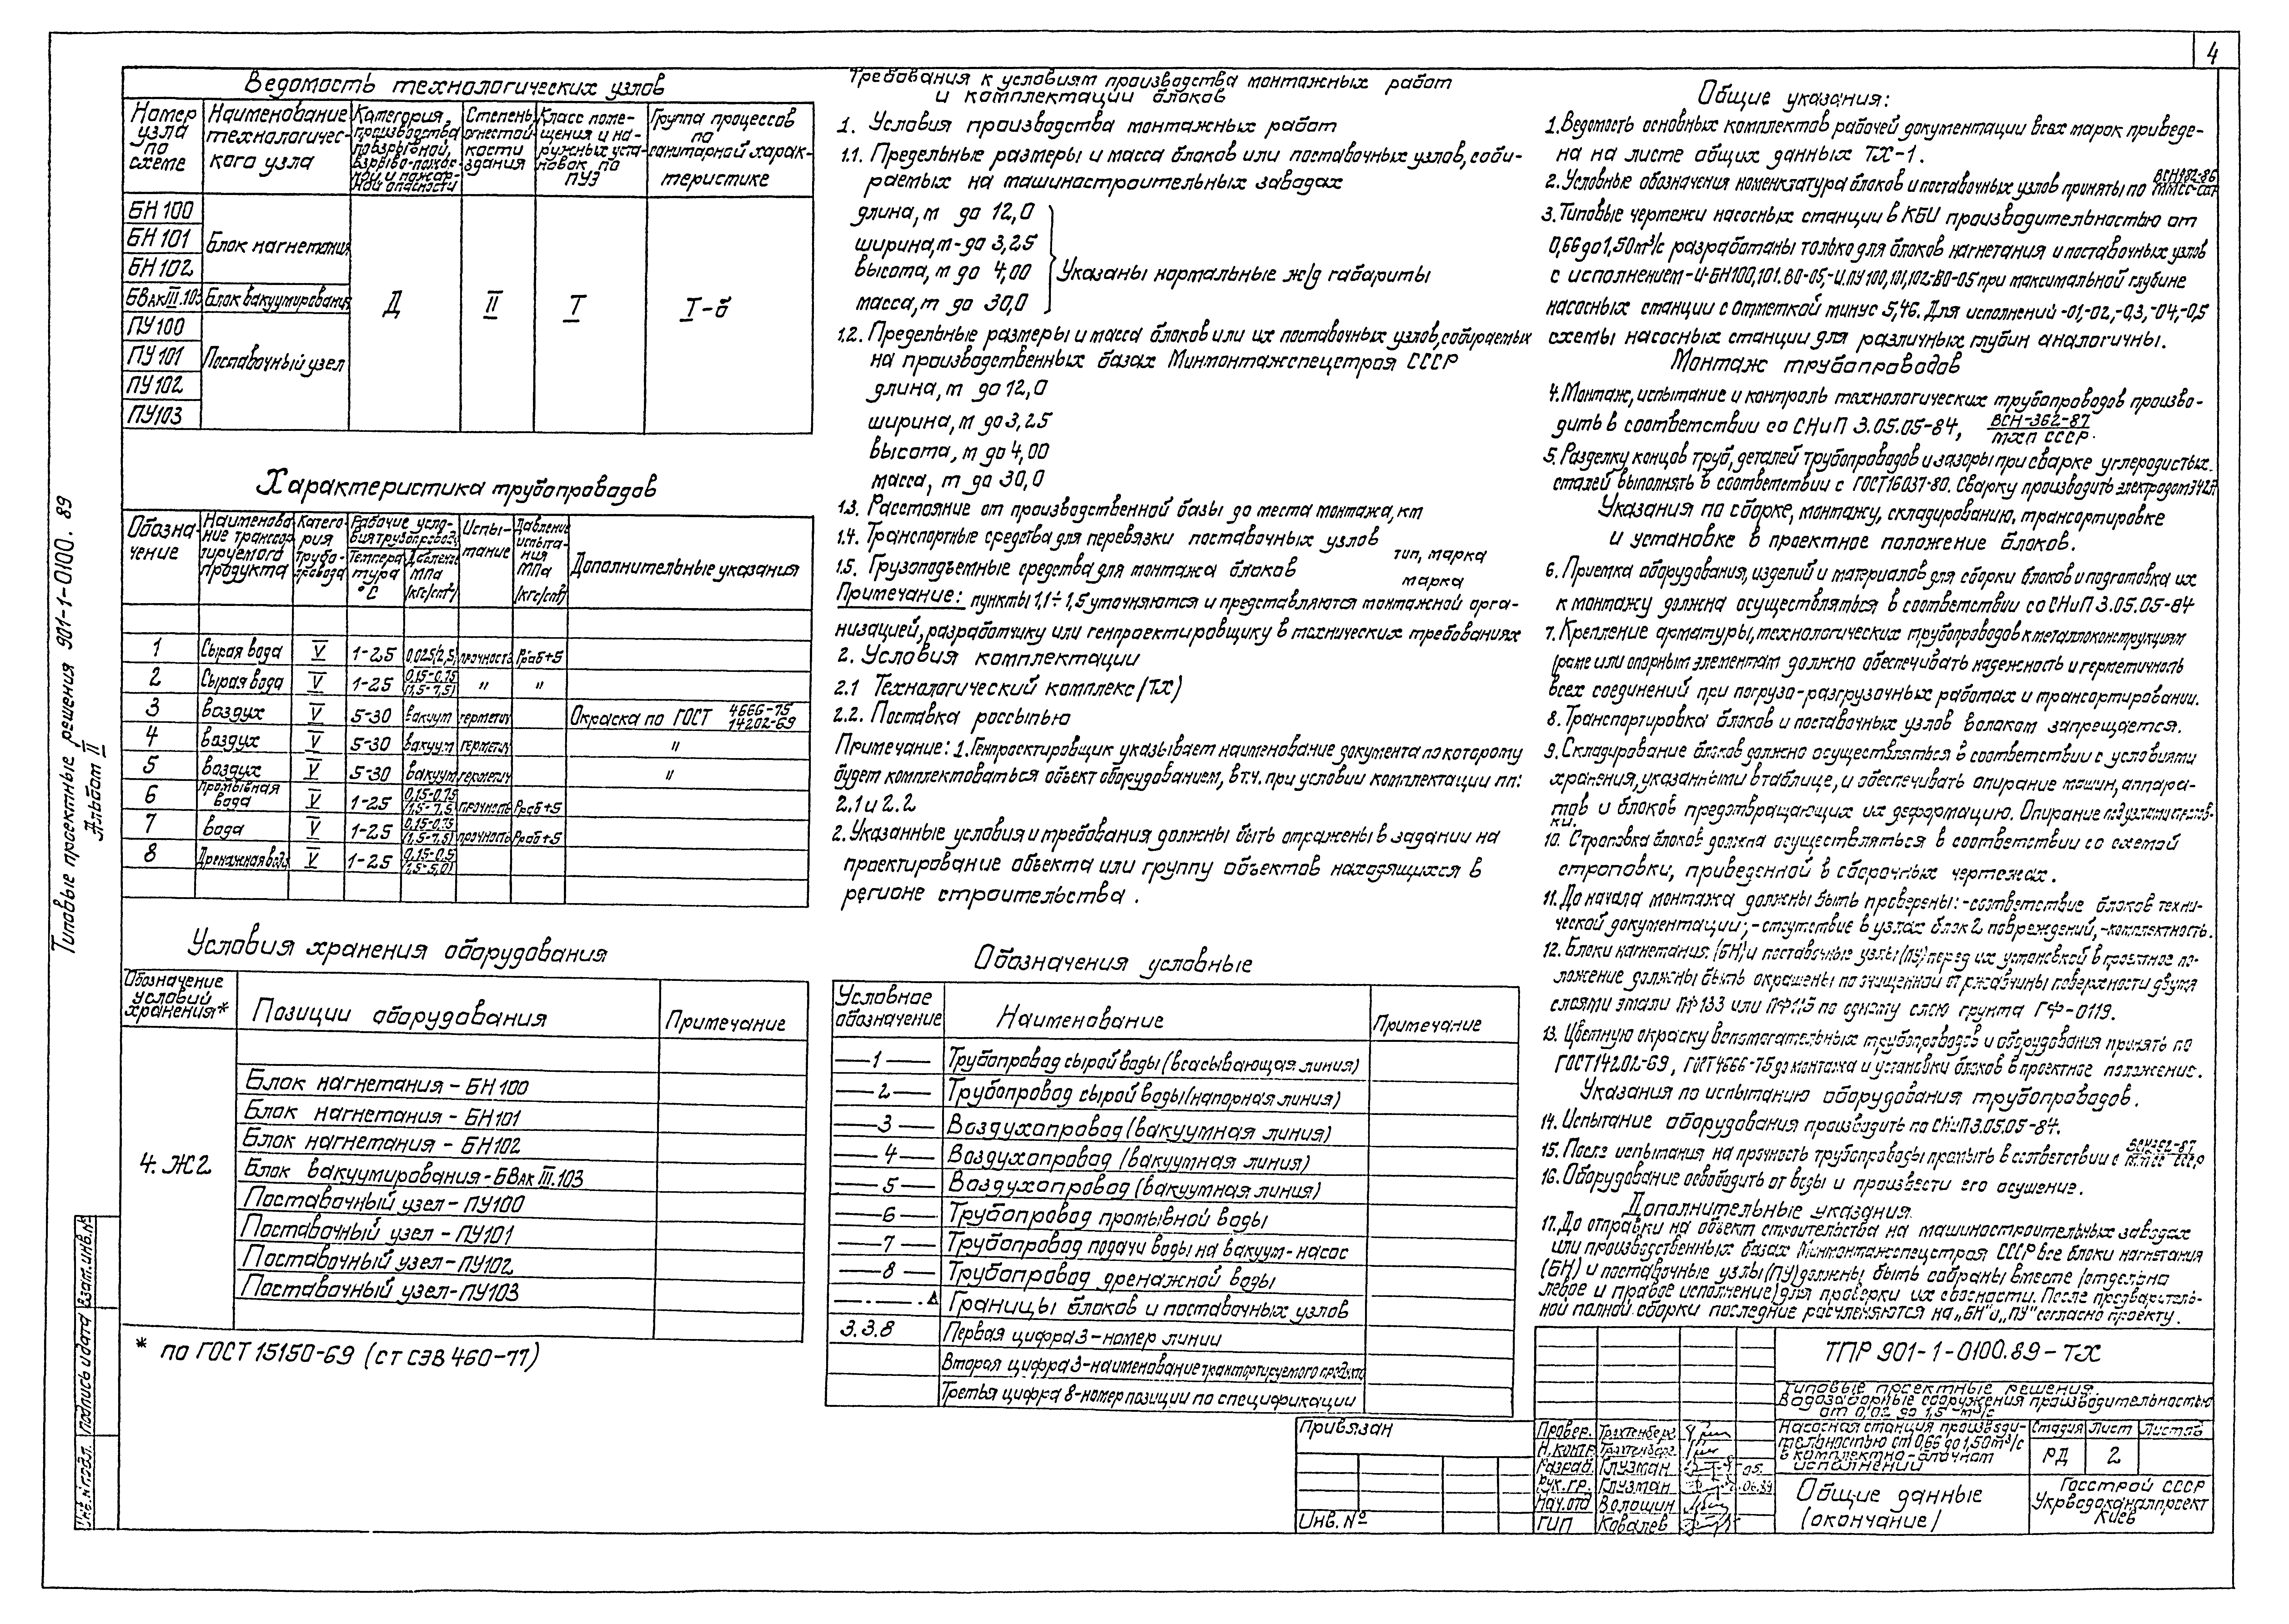 4
Типовые проектные решения 901-1-0100.89
Альбом II
Ведомость технологических узлов
Номер узла по схеме
Наименование технологического узла
Категория производства по взрывной, взрыво-пожарной и пожарной опасности
Степень огнестойкости здания
Класс помещения и наружных установок по ПУЭ
Группа процессов по санитарной характеристике
БН 100
БН 101
БН 102
Блок нагнетания
БВак III.103 Блок вакуумирования
ПУ 100
ПУ 101
ПУ 102
ПУ103
Поставочный узел
Д II I I-б
Характеристика трубопроводов
Обозначение
Наименование транспортируемого продукта
Категория трубопровода
Рабочие условия трубопровода
Температура °С
Давление МПа (кгс/см²)
Испытание
Давление испытания МПа (кгс/см²)
Дополнительные указания
1 Сырая вода V 1-25 0,025(2,5) прочность Рраб+5
2 Сырая вода V 1-25 0,15-0,75 (1,5-7,5) " "
3 Воздух V 5-30 вакуум герметич Окраска по ГОСТ 4666-75 14202-69
4 воздух V 5-30 вакуум герметич "
5 воздух V 5-30 вакуум герметич "
6 Промывная вода V 1-25 0,15-0,75 (1,5-7,5) прочность Рраб+5
7 вода V 1-25 0,15-0,75 (1,5-7,5) прочность Рраб+5
8 Дренажная вода V 1-25 0,15-0,5 (1,5-5,0)
Условия хранения оборудования
Обозначение условий хранения*
Позиции оборудования
Примечание
4. Ж2
Блок нагнетания - БН 100
Блок нагнетания - БН101
Блок нагнетания - БН102
Блок вакуумирования-БВак III.103
Поставочный узел - ПУ100
Поставочный узел - ПУ101
Поставочный узел-ПУ102
Поставочный узел-ПУ103
* по ГОСТ 15150-69 (ст СЭВ 460-77)
Требования к условиям производства монтажных работ
и комплектации блоков
1. Условия производства монтажных работ
1.1. Предельные размеры и масса блоков или поставочных узлов, соби-
раемых на машиностроительных заводах
длина, м до 12,0
ширина, м-до 3,25
высота, м до 4,00
масса, т до 30,0
Указаны нормальные ж/д габариты
1.2. Предельные размеры и масса блоков или их поставочных узлов, собираемых
на производственных базах Минмонтажспецстроя СССР
длина, м до 12,0
ширина, м до 3,25
высота, м до 4,00
масса, т до 30,0
1.3. Расстояние от производственной базы до места монтажа, км
1.4. Транспортные средства для перевязки поставочных узлов
тип, марка
1.5. Грузоподъемные средства для монтажа блоков
марка
Примечание: пункты 1,1÷1,5 уточняются и представляются монтажной орга-
низацией, разработчику или генпроектировщику в технических требованиях
2. Условия комплектации
2.1 Технологический комплекс (ТХ)
2.2. Поставка россыпью
Примечание: 1. Генпроектировщик указывает наименование документа по которому
будет комплектоваться объект оборудованием, в т.ч. при условии комплектации пп:
2.1 и 2.2
2. Указанные условия и требования должны быть отражены в задании на
проектирование объекта или группу объектов находящихся в
регионе строительства.
Обозначения условные
Условное обозначение
Наименование
Примечание
1 Трубопровод сырой воды (всасывающая линия)
2 Трубопровод сырой воды (напорная линия)
3 Воздухопровод (вакуумная линия)
4 Воздухопровод (вакуумная линия)
5 Воздухопровод (вакуумная линия)
6 Трубопровод промывной воды
7 Трубопровод подачи воды на вакуум-насос
8 Трубопровод дренажной воды
Границы блоков и поставочных узлов
3.3.8 Первая цифра 3-номер линии
Вторая цифра 3-наименование транспортируемого продукта
Третья цифра 8-номер позиции по спецификации
Общие указания:
1. Ведомость основных комплектов рабочей документации всех марок приведе-
на на листе общих данных ТХ-1.
2. Условные обозначения номенклатура блоков и поставочных узлов приняты по
3. Типовые чертежи насосных станции в КБИ производительностью от
0,66 до 1,50 м³/с разработаны только для блоков нагнетания и поставочных узлов
с исполнением-И-БН100,101.ВО-05,-И.ПУ100,101,102-ВО-05 при максимальной глубине
насосных станции с отметкой минус 5,46. Для исполнений -01,-02,-0,3,-04,-0,5
схемы насосных станции для различных глубин аналогичны.
Монтаж трубопроводов
4. Монтаж, испытание и контроль технологических трубопроводов произво-
дить в соответствии со СНиП 3.05.05-84, ВСН-362-87 МХП СССР.
5. Разделку концов труб, деталей трубопроводов и зазоры при сварке углеродистых
сталей выполнять в соответствии с ГОСТ16037-80. Сварку производить электродом
Указания по сборке, монтажу, складированию, транспортировке
и установке в проектное положение блоков.
6. Приемка оборудования, изделий и материалов для сборки блоков и подготовка их
к монтажу должна осуществляться в соответствии со СНиП 3.05.05-84
7. Крепление арматуры, технологических трубопроводов к металлоконструкциям
(раме или опорным элементам должно обеспечивать надежность и герметичность
всех соединений при погрузо-разгрузочных работах и трансортировании.
8. Транспортировка блоков и поставочных узлов волоком запрещается.
9. Складирование блоков должно осуществляться в соответствии с условиями
хранения, указанными в таблице, и обеспечивать опирание машин, аппара-
тов и блоков предотвращающих их деформацию. Опирание
10. Строповка блоков должна осуществляться в соответствии со схемой
строповки, приведенной в сборочных чертежах.
11. До начала монтажа должны быть проверены:-соответствие блоков техни-
ческой документации;-отсутствие в узлах блок2 повреждений,-комплектность.
12. Блоки нагнетания (БН) и поставочные узлы (ПУ) перед их установкой в проектное по-
ложение должны быть окрашены по очищенной от ржавчины поверхности двумя
слоями эмали ПФ133 или ПФ115 по одному слою грунта ГФ-0119.
13. Цветную окраску вспомогательных трубопроводов и оборудования принять по
ГОСТ14202-69, ГОСТ4666-75 до монтажа и установки блоков в проектное положение.
Указания по испытанию оборудования трубопроводов.
14. Испытание оборудования производить по СНиП3.05.05-84.
15. После испытания на прочность трубопроводы промыть в соответствии с
16. Оборудование освободить от воды и произвести его осушение.
Дополнительные указания.
17. До отправки на объект строительства на машиностроительных заводах
или производственных базах Минмонтажспецстроя СССР все блоки нагнетания
(БН) и поставочные узлы (ПУ) должны быть собраны вместе (отдельно
левое и правое исполнение) для проверки их соосности. После предваритель-
ной полной сборки последние расчленяются на „БН" и „ПУ" согласно проекту.
ТПР 901-1-0100.89-ТХ
Типовые проектные решения.
Водозаборные сооружения производительностью
от 0,02 до 1,5 м³/с
Насосная станция производи-
тельностью от 0,66 до 1,50 м³/с
в комплектно-блочном
исполнении
Стадия Лист Листов
РД 2
Общие данные
(окончание)
Госстрой СССР
Укрводоканалпроект
Киев
Привязан
Инв. №
Провер. Трахтенберг
Н.контр. Трахтенберг
Разраб. Глузман
Рук.гр. Глузман
Нач.отд Волошин
ГИП Ковалев
Инв.№ подл. Подпись и дата Взам.инв.№